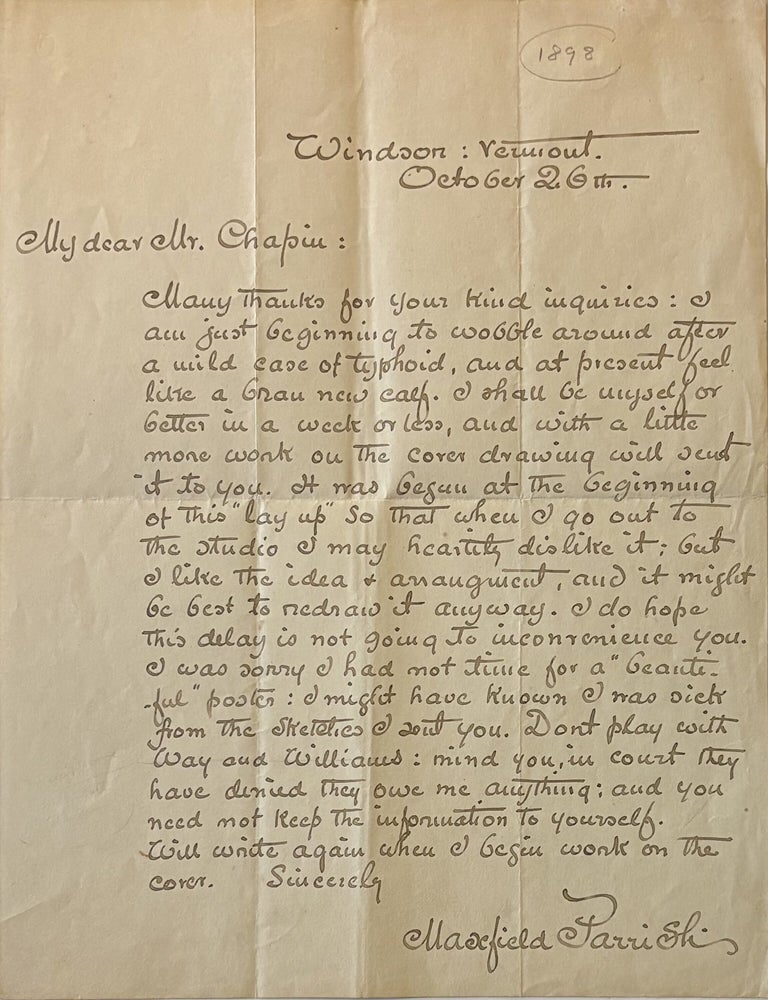 1898
Windsor : Vermont.
October 26th.
My dear Mr. Chapin :
Many thanks for your kind inquiries : I
am just beginning to wobble around after
a mild case of typhoid, and at present feel
like a bran new calf. I shall be myself or
better in a week or less, and with a little
more work on the cover drawing will send
it to you. It was begun at the beginning
of this "lay up" so that when I go out to
the studio I may heartily dislike it ; but
I like the idea & arraugment, and it might
be best to redraw it anyway. I do hope
this delay is not going to inconvenience you.
I was sorry I had not time for a "beauti-
-ful" poster : I might have known I was sick
from the sketches I sent you. Dont play with
Way and Williams : mind you, in court they
have denied they owe me anything ; and you
need not keep the information to yourself.
Will write again when I begin work on the
cover. Sincerely
Maxfield Parrish